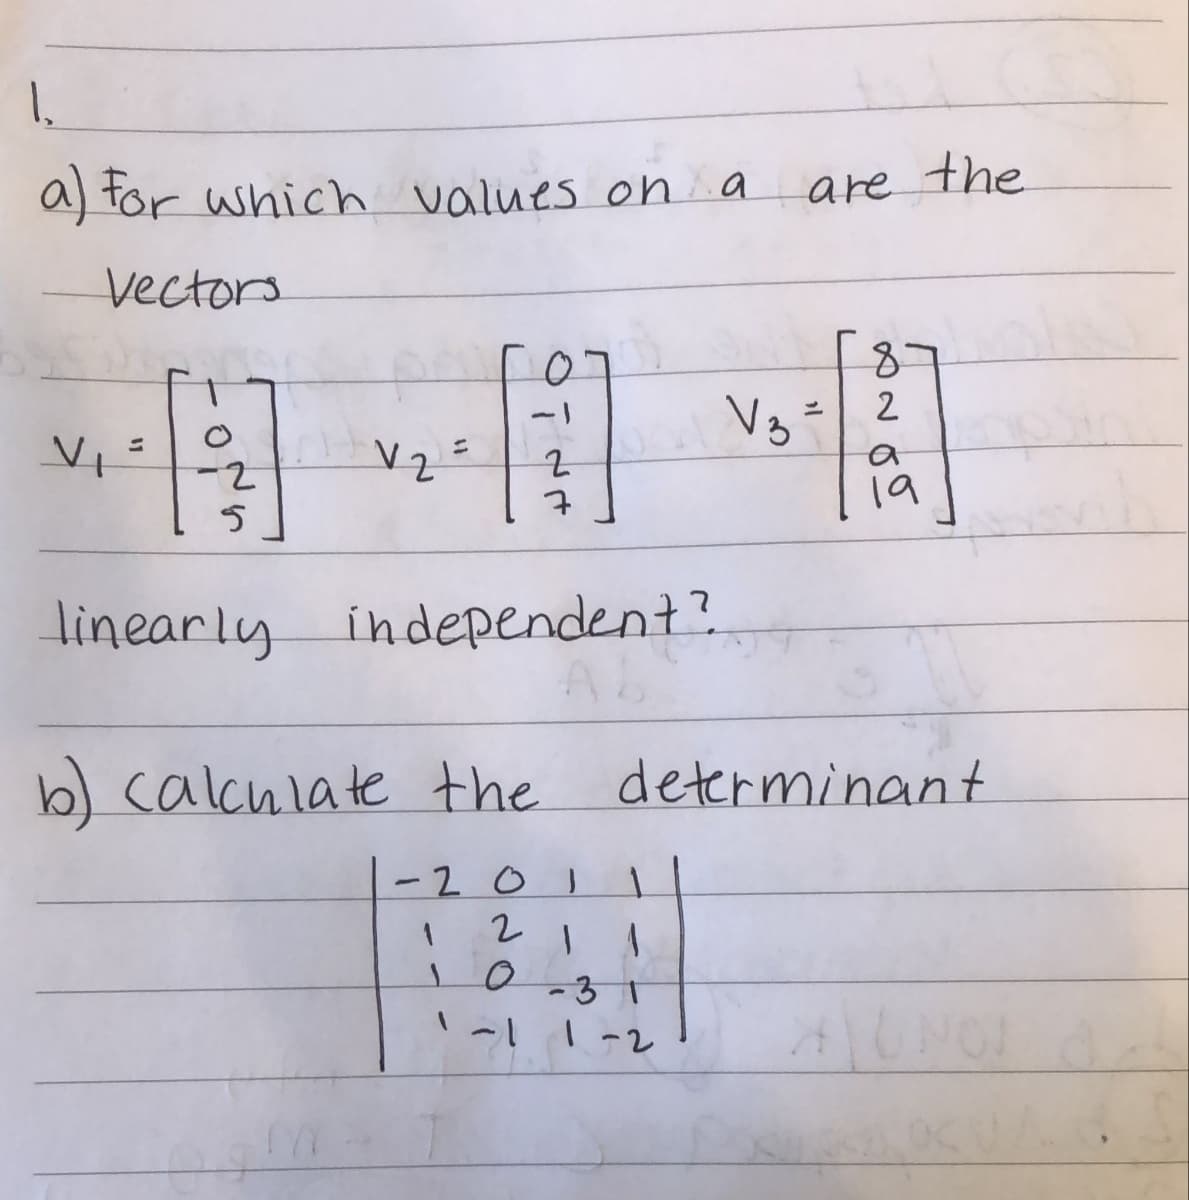 1.
a) For which values on a are the
vectors
V₁ = [1 0 -2 5] V₂ = [0 -1 2 7] V₃ = [8 2 a 19]
linearly independent?
b) calculate the determinant
|-2 0 1 1|
|1 2 1 1|
|1 0 -3 1|
|1 -1 1 -2|